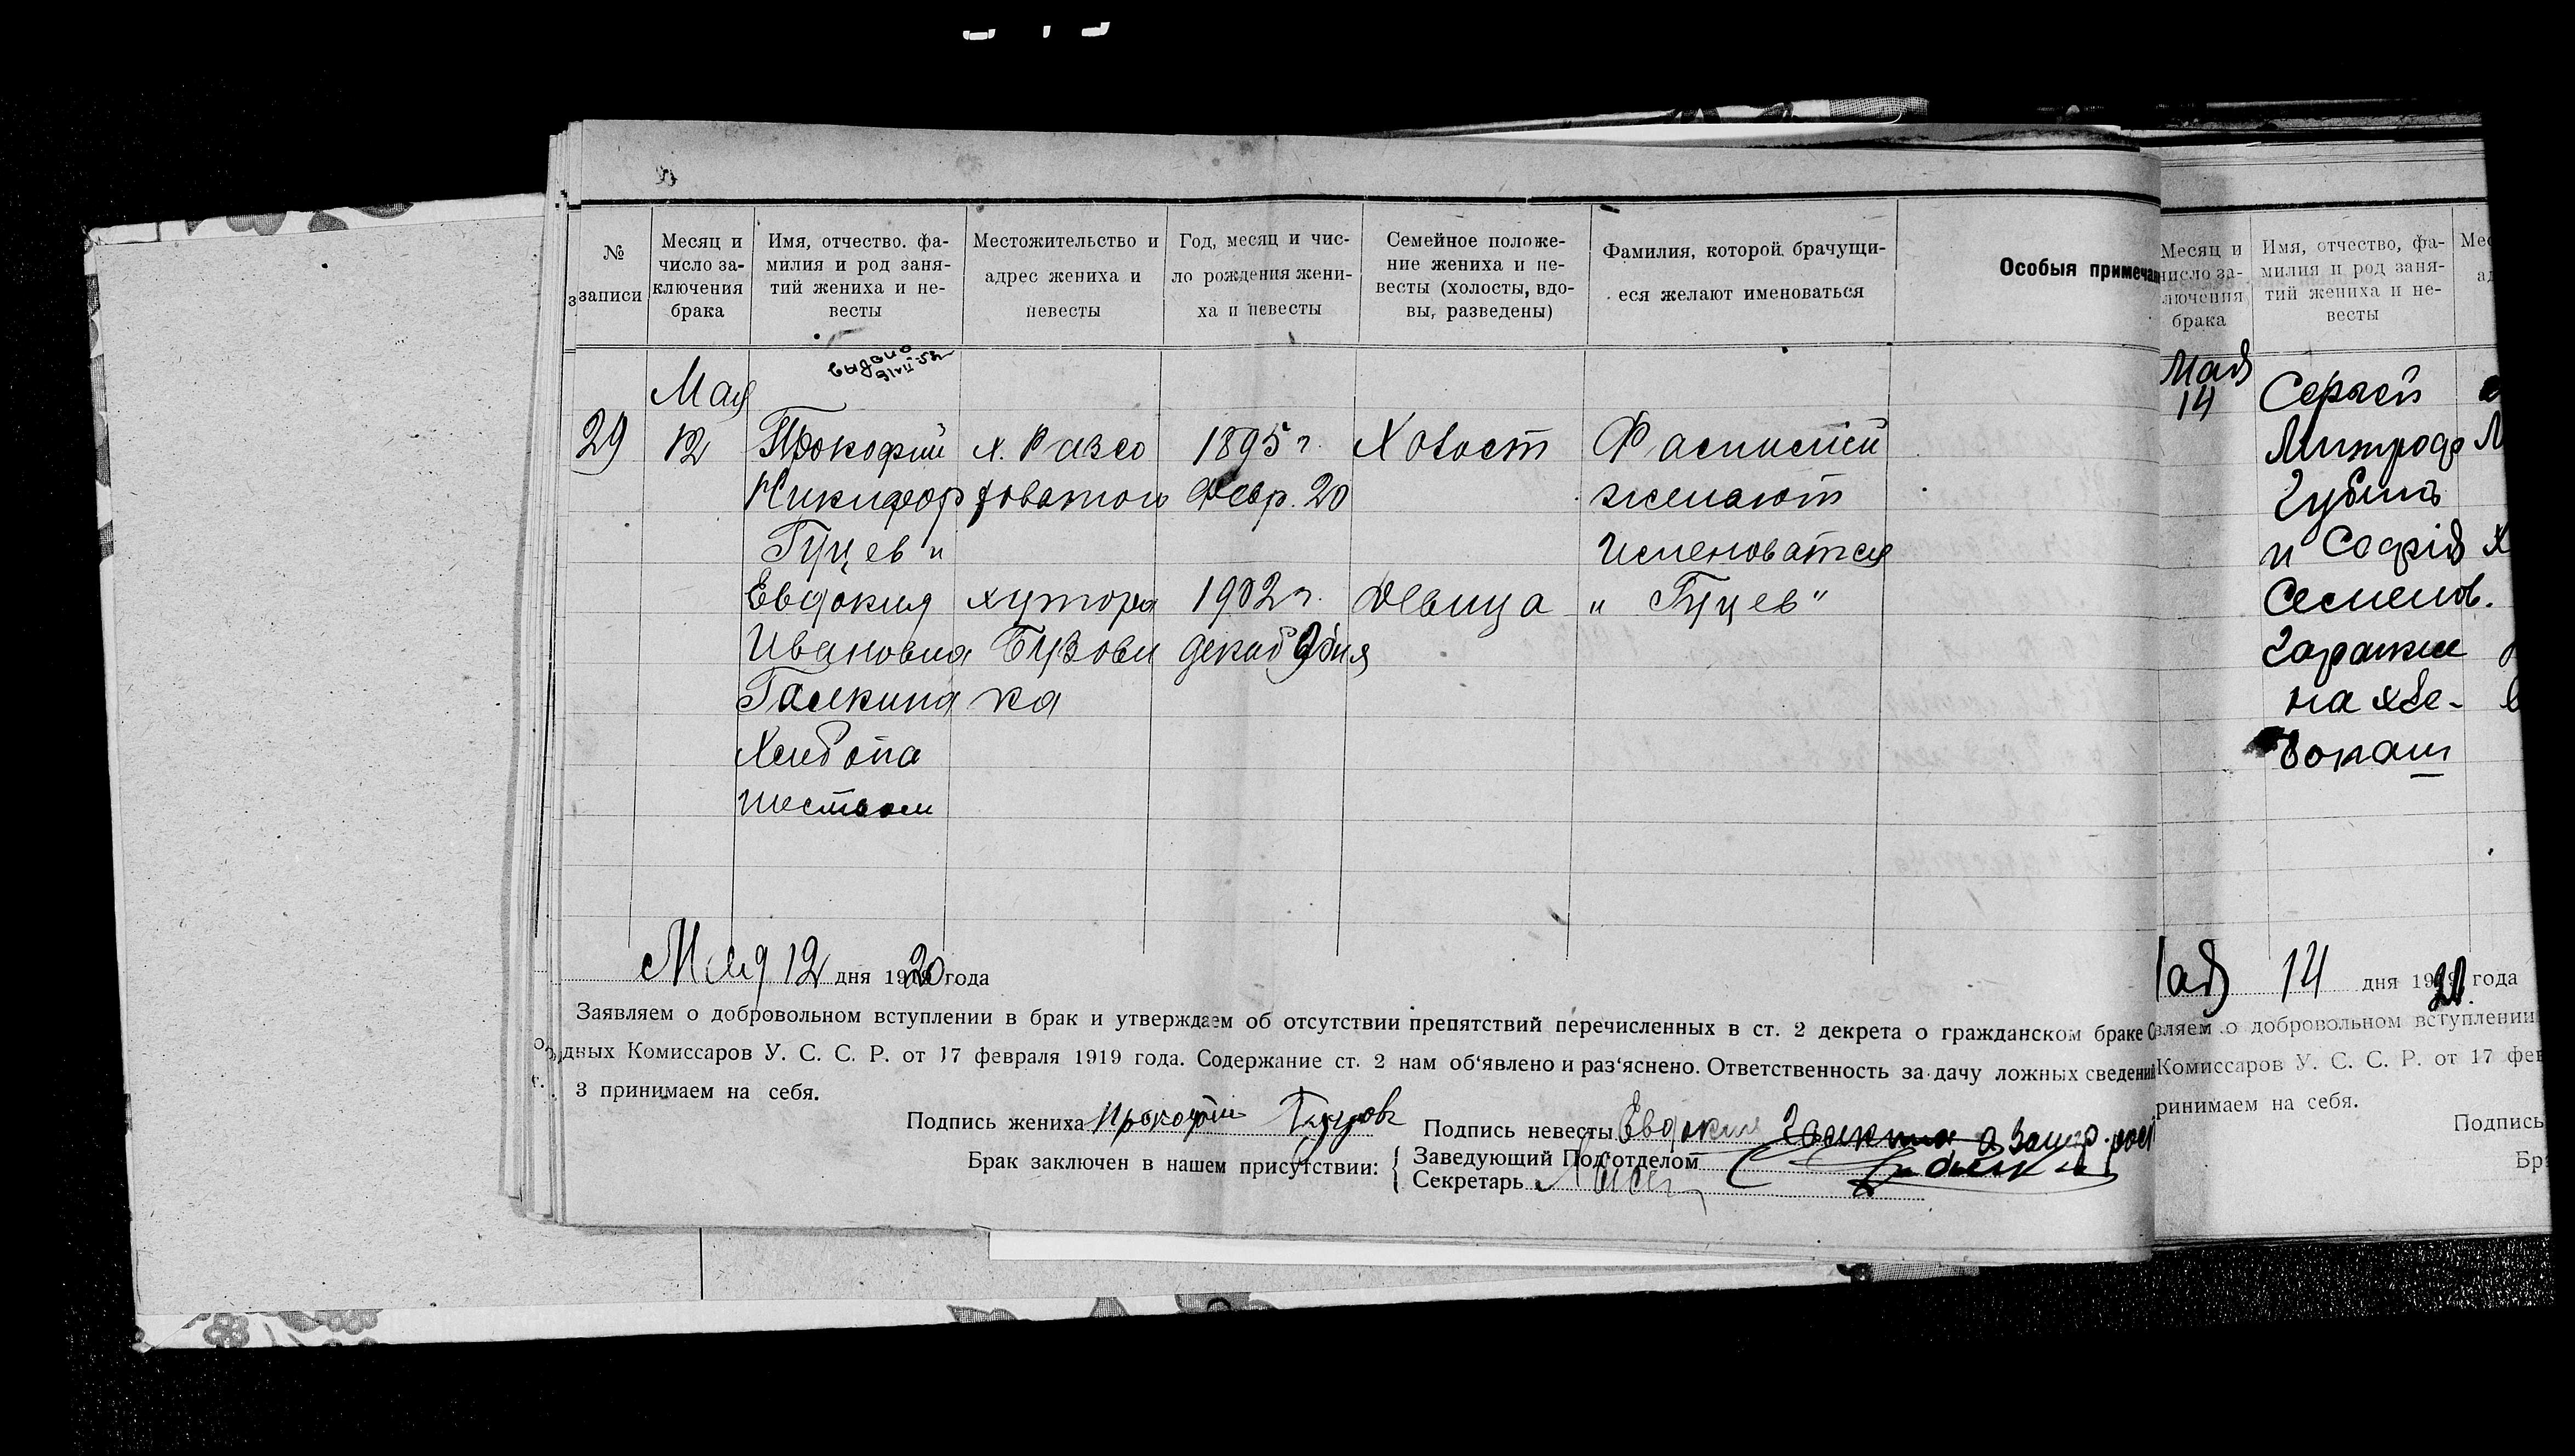 №
записи
Месяц и
число за-
ключения
брака
Имя, отчество. фа-
милия и род заня-
тий жениха и не-
весты
Местожительство и
адрес жениха и
невесты
Год, месяц и чис-
ло рождения жени-
ха и невесты
Семейное положе-
ние жениха и не-
весты (холосты, вдо-
вы, разведены)
Фамилия, которой брачущи-
еся желают именоваться
Особыя примечан
выдано
Мая
29 12 Прокофий х. Разсо 1895 г. Холост Фамилией
Никифор ховатой Февр. 20 желают
Гуцев и именоватся
Евдокия хутора 1902 г. Девица " Гуцев "
Ивановна Бузови декаб дня
Галкина ка
Хлебопа
шеством
Мая 12 дня 1920 года
Заявляем о добровольном вступлении в брак и утверждаем об отсутствии препятствий перечисленных в ст. 2 декрета о гражданском браке С
одных Комиссаров У. С. С. Р. от 17 февраля 1919 года. Содержание ст. 2 нам об'явлено и раз'яснено. Ответственность за дачу ложных сведений
3 принимаем на себя.
Подпись жениха Прокофий Гуцовъ Подпись невесты Евдокия
Брак заключен в нашем присутствии: Заведующий Подотделом
Секретарь
Месяц и
число за-
лючения
брака
Имя, отчество, фа-
милия и род заня-
тий жениха и не-
весты
Мес
ад
Маѣ
14 Сергей
Митроф М
Губинъ
и Софія х
Семенов.
на хле-
бопаш
14 дня 1920 года
вляем о добровольном вступлении
Комиссаров У. С. С. Р. от 17 фев
ринимаем на себя.
Подпись
Бр